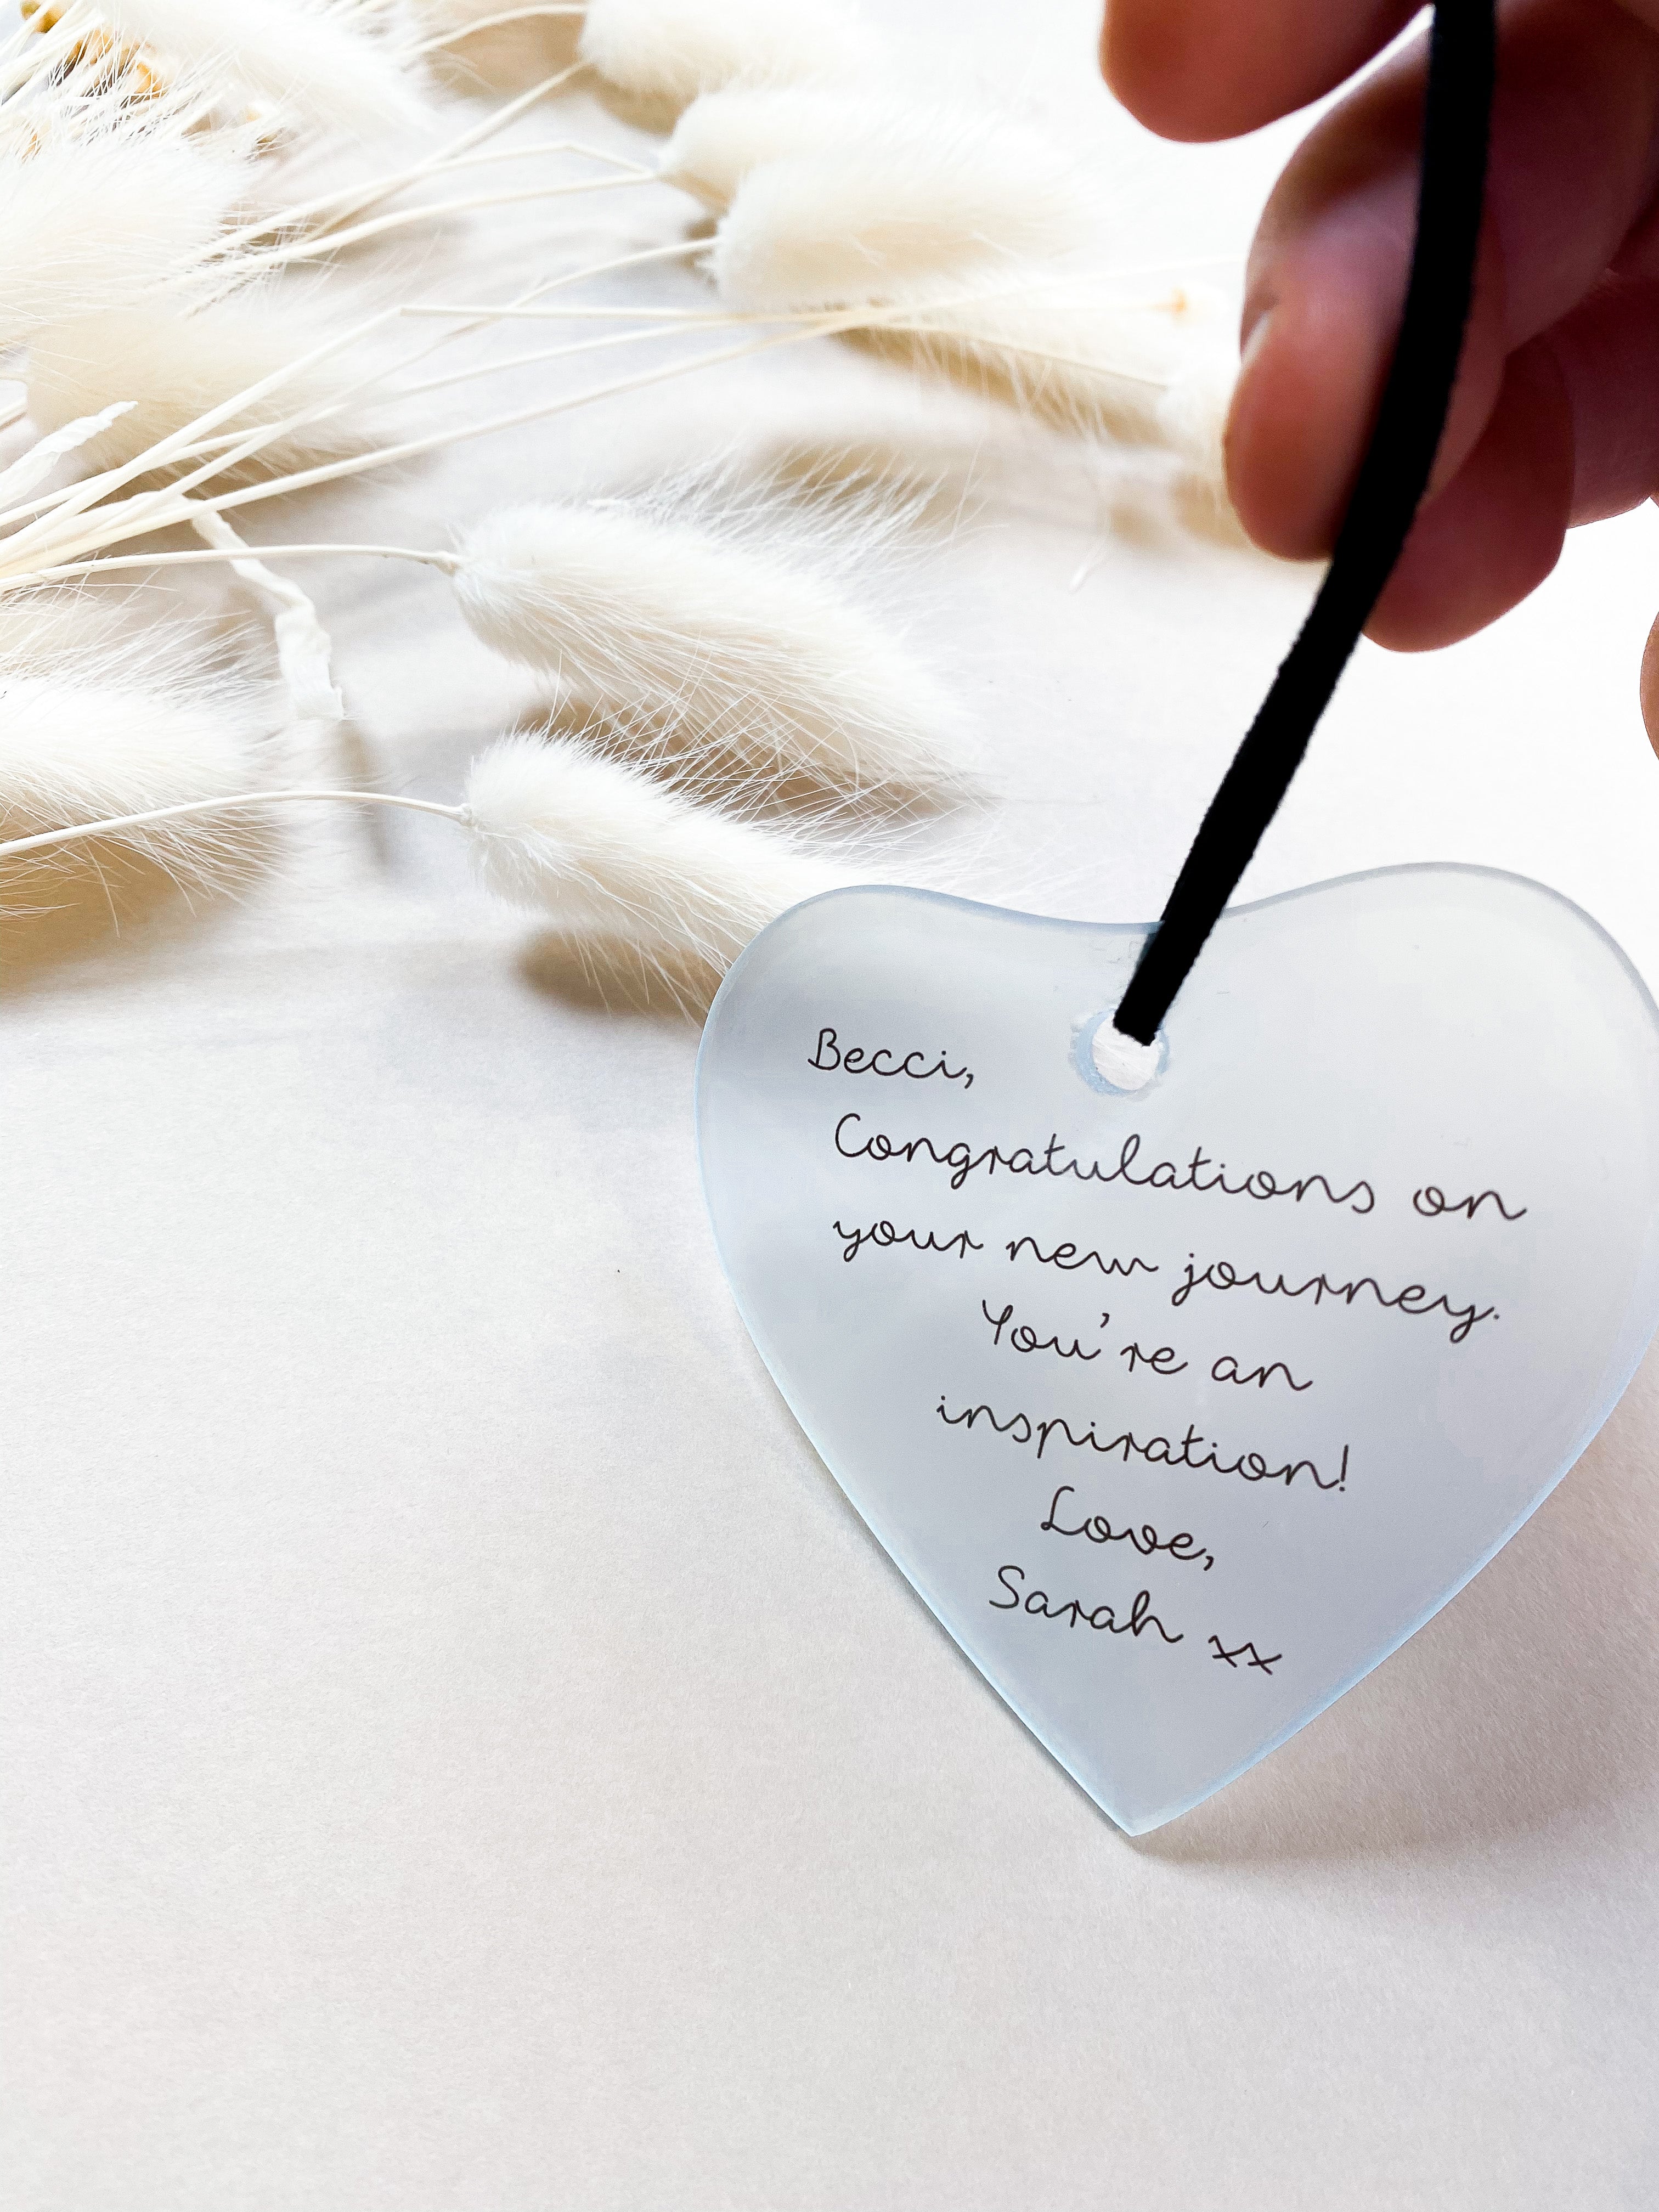 Becci,
Congratulations on
your new journey.
You're an
inspiration!
Love,
Sarah xx